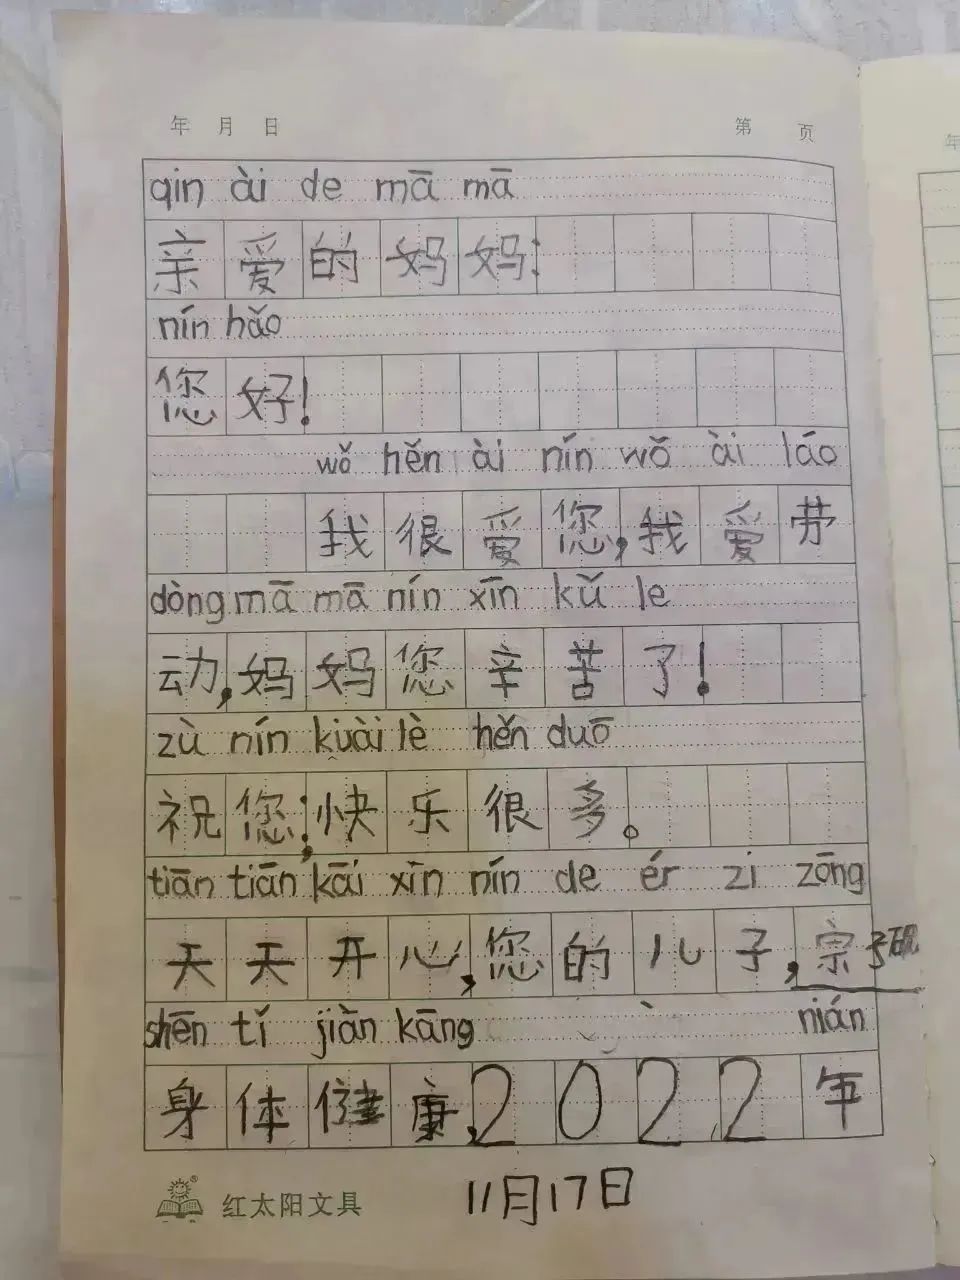 年 月 日 第 页
qin ài de mā mā
亲爱的妈妈:
nín hǎo
您好!
wǒ hěn ài nín wǒ ài láo
我很爱您,我爱劳
dòng mā mā nín xīn kǔ le
动,妈妈您辛苦了!
zù nín kuài lè hěn duō
祝您;快乐很多。
tiān tiān kāi xīn nín de ér zi zōng
天天开心,您的儿子,宗子砚
shēn tǐ jiàn kāng nián
身体健康,2022年
红太阳文具 11月17日
年